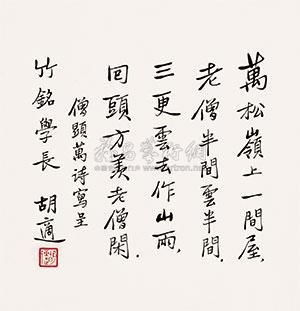 萬松嶺上一間屋.
老僧半間雲半間.
三更雲去作山雨.
回頭方羨老僧閑.
僧顕萬詩寫呈
竹銘學長 胡適